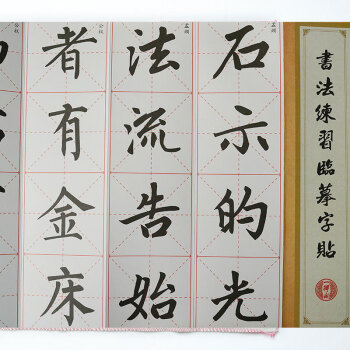 書法練習臨摹字貼
石示的光
法流告始
者有金床